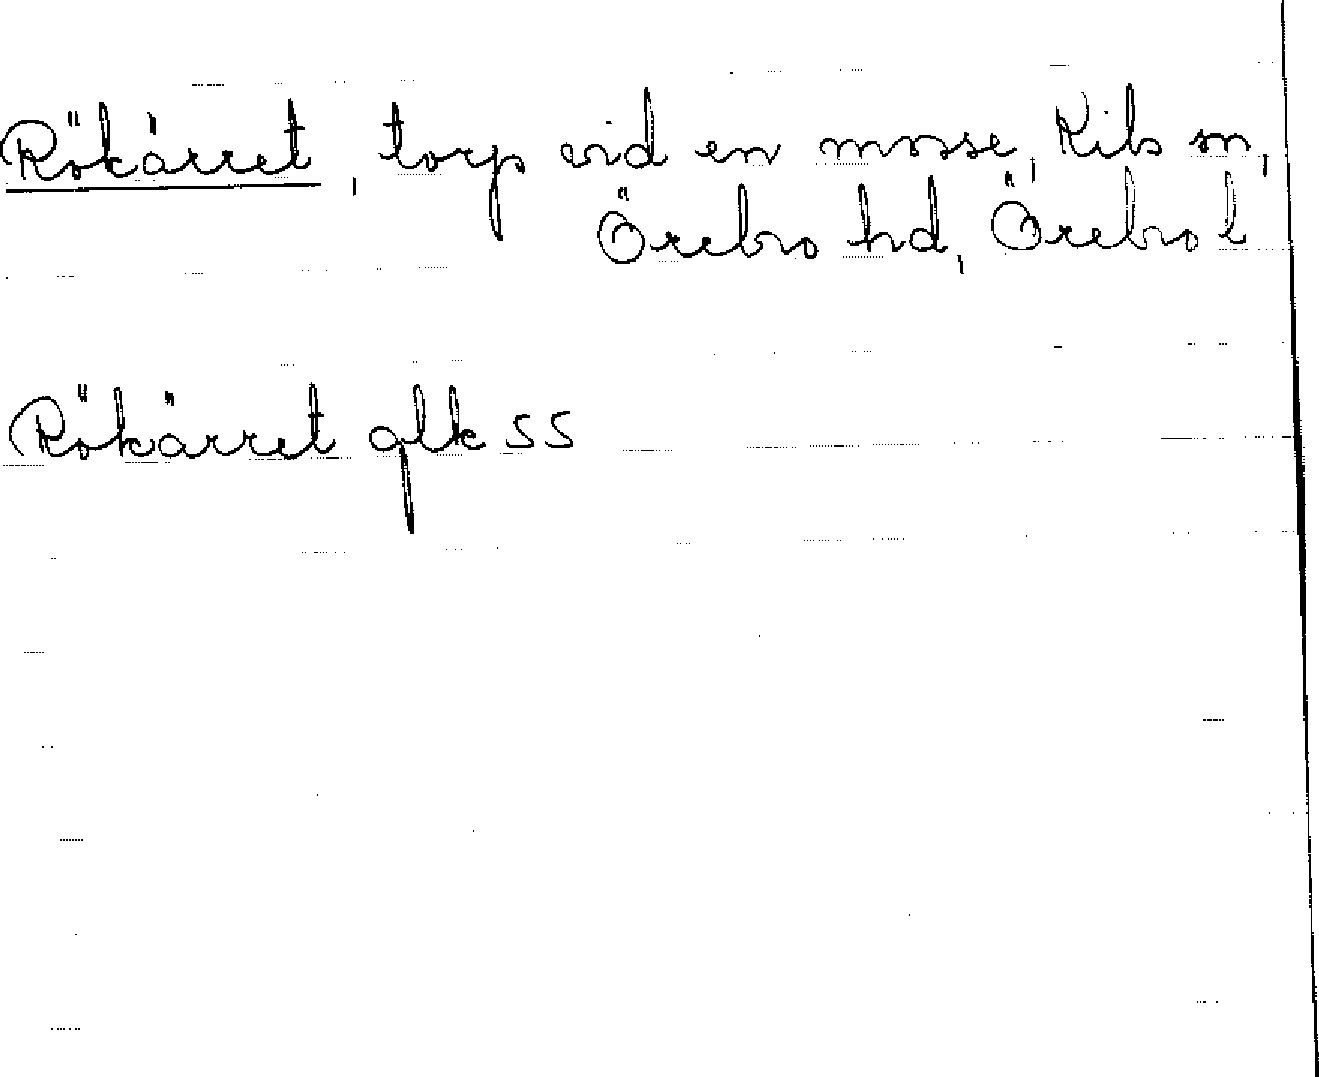 Rökärret, torp vid en mosse, Kils sn,
Örebro hd, Örebro l
Rökärret glk 55